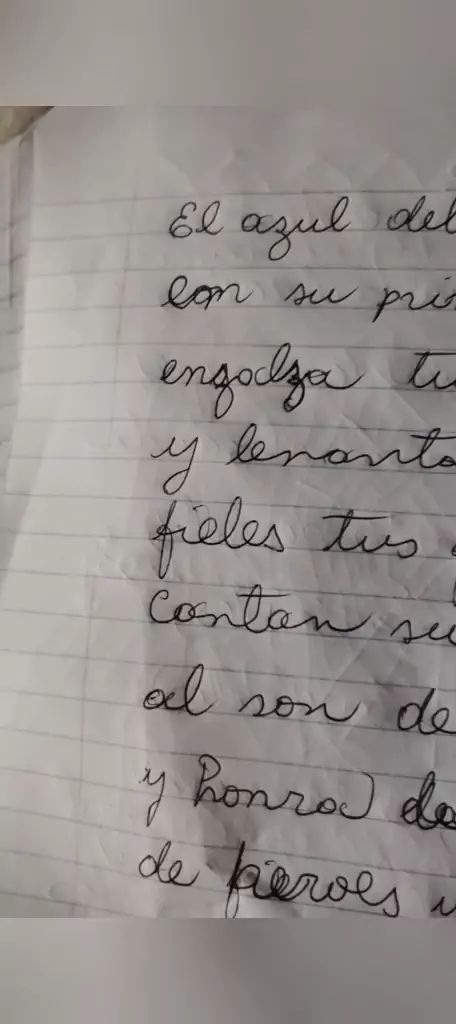 El azul del
con su pri
engodza tu
y levanta
fieles tus
cantan su
al son de
y honra de
de fieroes